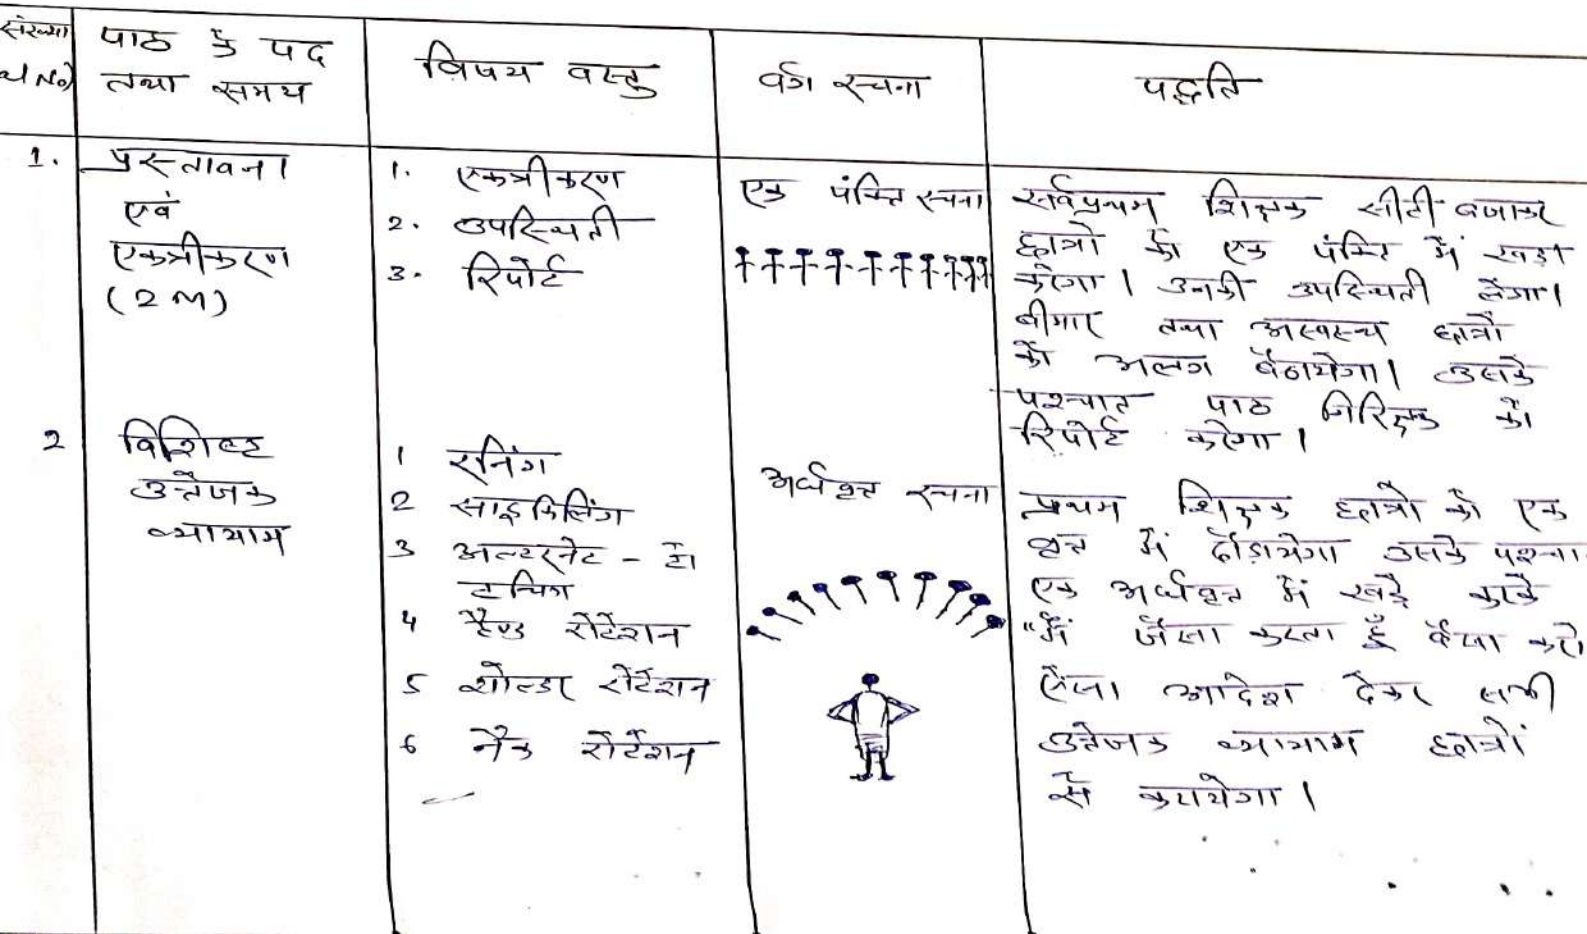 संख्या
No)
पाठ के पद
तथा समय
विषय वस्तु
वर्ग रचना
पद्धति
1.
प्रस्तावना
एवं
एकत्रीकरण
(2 M)
1. एकत्रीकरण
2. उपस्थिती
3. रिपोर्ट
एक पंक्ति रचना
सर्वप्रथम शिक्षक सीटी बजाकर
छात्रो को एक पंक्ति में खड़ा
करेगा। उनकी उपस्थिती लेगा।
बीमार तथा अस्वस्थ छात्रो
को अलग बैठायेगा। उसके
पश्चात पाठ निरिक्षक को
रिपोर्ट करेगा।
2
विशिष्ट
उत्तेजक
व्यायाम
1 रनिंग
2 साइकिलिंग
3 अल्टरनेट - टो
टचिंग
4 हैण्ड रोटेशन
5 शोल्डर रोटेशन
6 नैक रोटेशन
अर्धवृत्त रचना
प्रथम शिक्षक छात्रो को एक
वृत्त में दौड़ायेगा उसके पश्चा
एक अर्धवृत्त में खड़े करके
"मैं जैसा करता हूँ वैसा करो
ऐसा आदेश देकर सभी
उत्तेजक व्यायाम छात्रों
से करायेगा।